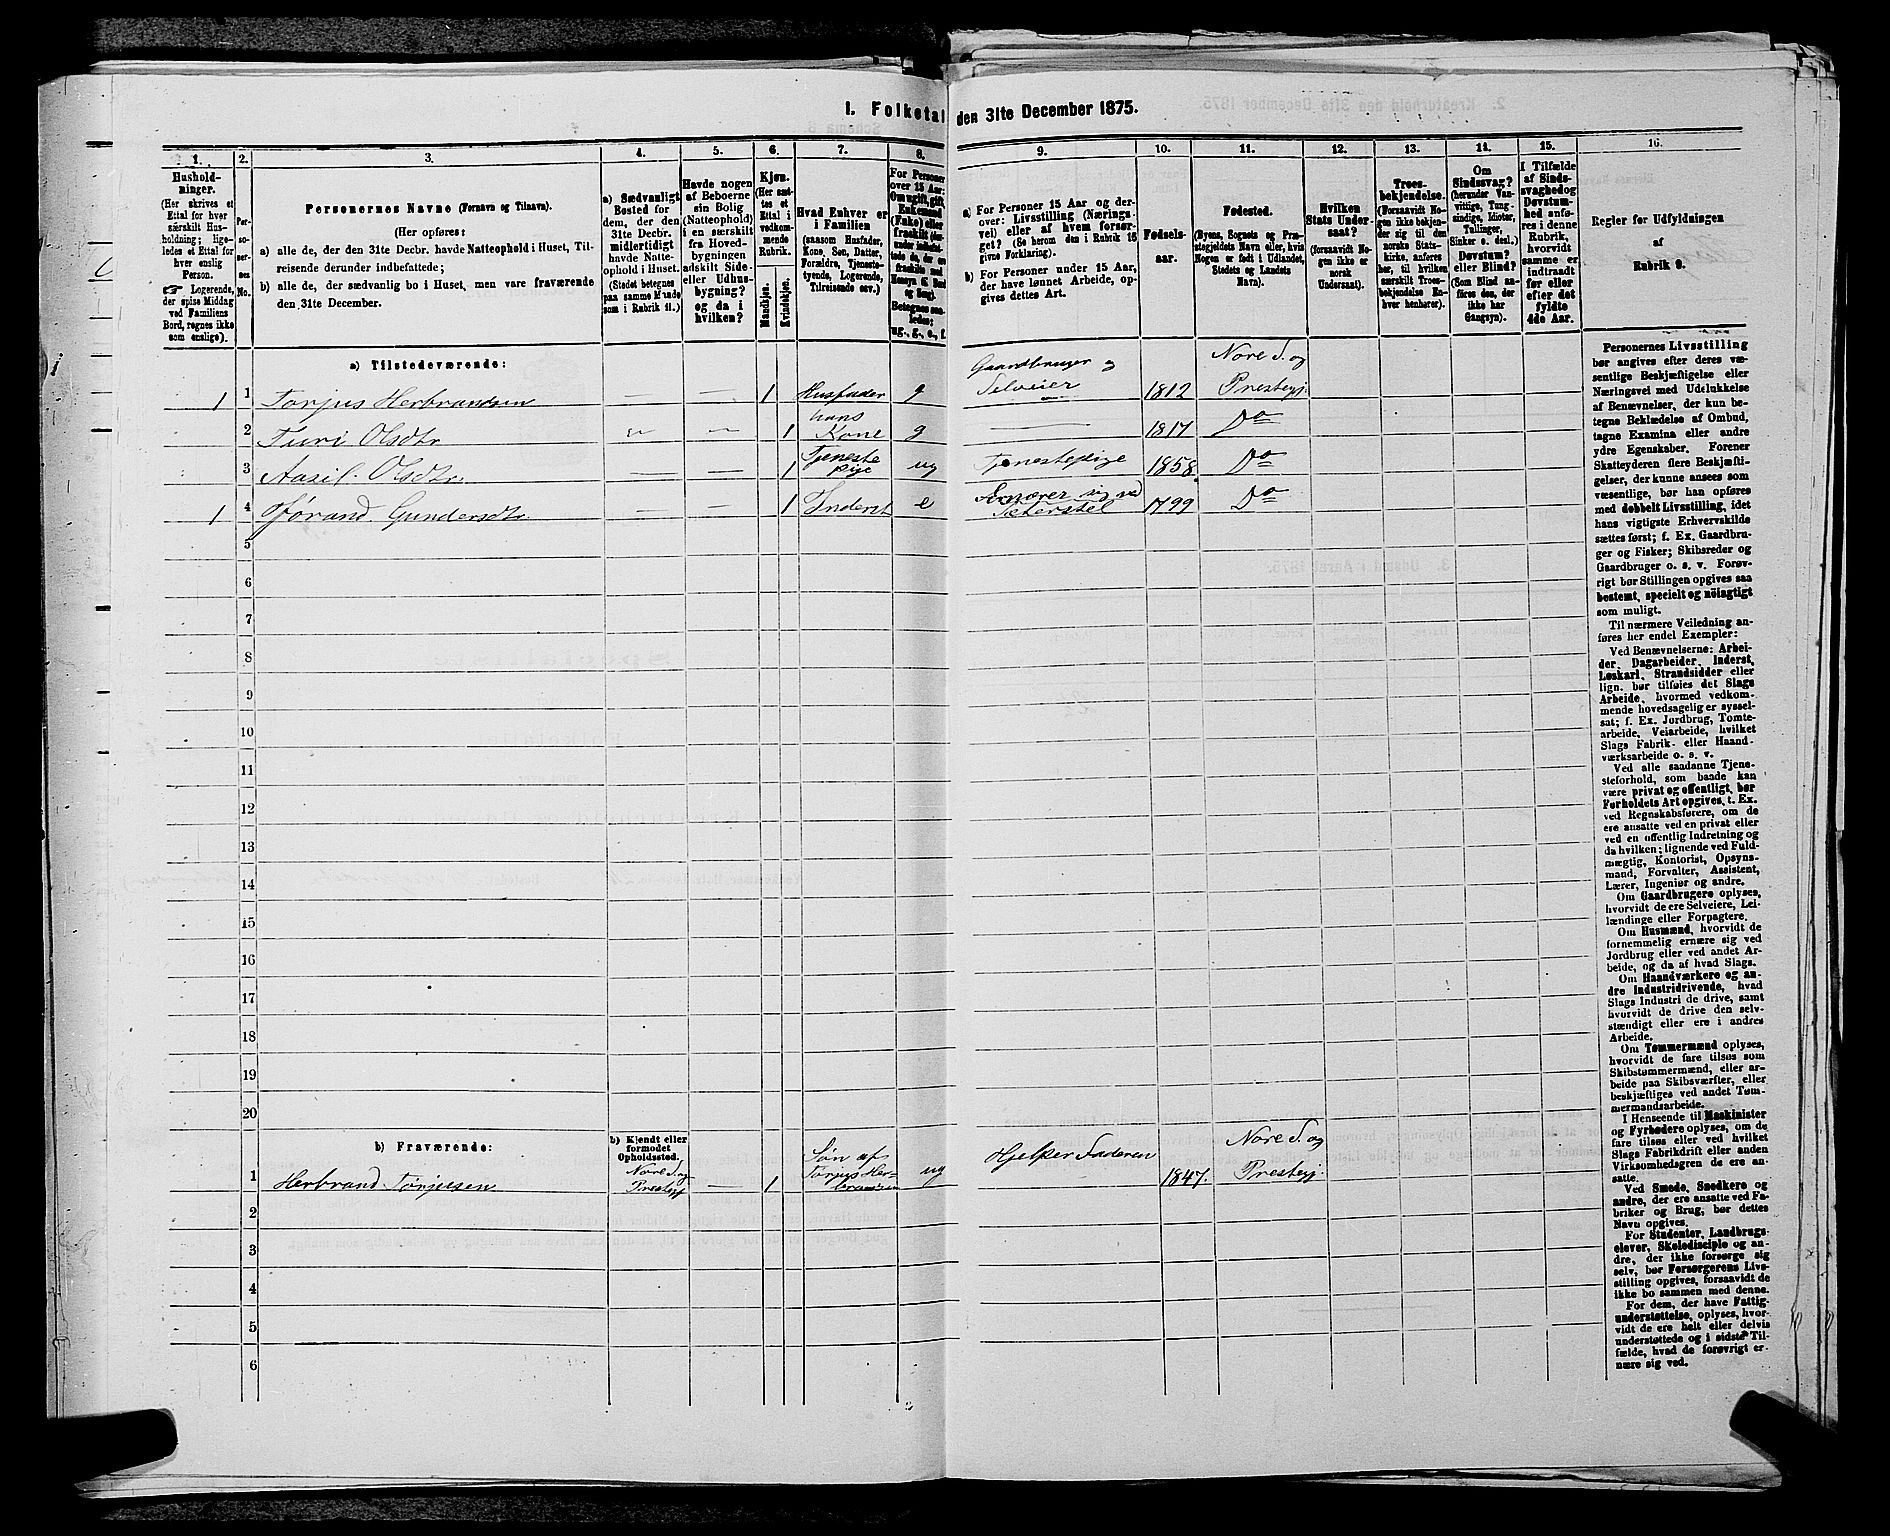 1. Folketal den 31te December 1875.
1.
Hushold-
ninger.
(Her skrives et
Ettal for hver
særskilt Hus-
holdning; lige-
ledes et Ettal for
hver enslig
Person.
Logerende,
der spise Middag
ved Familiens
Bord, regnes ikke
som enslige).
2.
Per-
so-
ner-
nes
No.
3.
Personernes Navne (Fornavn og Tilnavn).
(Her opføres:
a) alle de, der den 31te Decbr. havde Natteophold i Huset, Til-
reisende derunder indbefattede;
b) alle de, der sædvanlig bo i Huset, men vare fraværende
den 31te December.
4.
a) Sædvanligt
Bosted for
dem, der den
31te Decbr.
midlertidigt
havde Natte-
ophold i Huset.
(Stedet betegnes
paa samme Maade
som i Rubrik 11.)
5.
Havde nogen
af Beboerne
sin Bolig
(Natteophold)
i en særskilt
fra Hoved-
bygningen
adskilt Side-
eller Udhus-
bygning?
og da i
hvilken?
6.
Kjøn.
(Her sæt-
tes et
Ettal i
vedkom-
mende
Rubrik.
Mandkjøn.
Kvindekjøn.
7.
Hvad Enhver er
i Familien
(saasom Husfader,
Kone, Søn, Datter,
Forældre, Tjeneste-
tyende, Logerende,
Tilreisende osv.)
8.
For Personer
over 15 Aar:
Om ugift, gift,
Enkemand
(Enke) eller
fraskilt
Betegnes saa-
ledes:
ug., g., e., f.
9.
a) For Personer 15 Aar og der-
over: Livsstilling (Nærings-
vei) eller af hvem forsør-
get? (Se herom den i Rubrik 16
givne Forklaring).
b) For Personer under 15 Aar,
der have lønnet Arbeide, op-
gives dettes Art.
10.
Fødsels-
aar.
11.
Fødested.
(Byens, Sognets og Præ-
stegjeldets Navn eller, hvis
Nogen er født i Udlandet,
Stedets og Landets
Navn).
12.
Hvilken
Stats Under-
saat?
(forsaavidt No-
gen ikke er
norsk
Undersaat).
13.
Troes-
bekjendelse.
(Forsaavidt No-
gen ikke bekjen-
der sig til den
norske Stats-
kirke, anføres
her, til hvilken
særskilt Troes-
bekjendelse En-
hver henhører).
14.
Om
Sindssvag?
(herunder Van-
vittige, Tung-
sindige, Idioter,
Tullinger,
Sinker o. desl.)
Døvstum?
eller Blind?
(Som Blind an-
føres den, der
ikke har
Gangsyn).
15.
I Tilfælde
af Sinds-
svaghed og
Døvstum-
hed anfø-
res i denne
Rubrik,
hvorvidt
samme er
indtraadt
før eller
efter det
fyldte
4de Aar.
16.
Regler for Udfyldningen
af
Rubrik 9.
a) Tilstedeværende:
1 1 Torjus Herbrandsen — — 1 Husfader g Gaardbruger og Selveier 1812 Nore S. og Prestegj.
2 Turi Olsdtr — — 1 hans Kone g — 1817 Do
3 Aasil Olsdtr. — — 1 Tjeneste pige ug Tjenestepige 1858. Do
1 4 Jørand Gundersdtr — — 1 Inderst e Ernærer sig ved 1799 Do
5
6
7
8
9
10
11
12
13
14
15
16
17
18
19
20
b) Fraværende:
b) Kjendt eller
formodet
Opholdssted.
1 Herbrand Torjussen Nore S. og Prestegj — 1 Søn af Torjus Herbrandsen ug Hjelper Faderen 1847. Nore S. og Prestegj.
2
3
4
5
6
Personernes Livsstilling
bør angives efter deres væ-
sentlige Beskjæftigelse eller
Næringsvei med Udelukkelse
af Benævnelser, der kun be-
tegne Beklædelse af Ombud,
tagne Examina eller andre
ydre Egenskaber. Forener
Skatteyderen flere Beskjæfti-
gelser, der kunne ansees som
væsentlige, bør han opføres
med dobbelt Livsstilling, idet
hans vigtigste Erhvervskilde
sættes først; f. Ex. Gaardbru-
ger og Fisker; Skibsreder og
Gaardbruger o. s. v. Forøv-
rigt bør Stillingen opgives saa
bestemt, specielt og nøiagtigt
som muligt.
Til nærmere Veiledning an-
føres her endel Exempler:
Ved Benævnelserne: Arbei-
der, Dagarbeider, Inderst,
Løskarl, Strandsidder eller
lign. bør tilføies det Slags
Arbeide, hvormed vedkom-
mende hovedsagelig er syssel-
sat; f. Ex. Jordbrug, Tomte-
arbeide, Veiarbeide, hvilket
Slags Fabrik- eller Haand-
værksarbeide o. s. v.
Ved alle saadanne Tjene-
steforhold, som baade kan
være privat og offentligt, bør
Forholdets Art opgives, t. Ex.
ved Regnskabsførere, om de
ere ansatte ved en privat eller
ved en offentlig Indretning og
da hvilken; lignende ved Fuld-
mægtig, Kontorist, Opsyns-
mand, Forvalter, Assistent,
Lærer, Ingeniør og andre.
Om Gaardbrugere oplyses,
hvorvidt de ere Selveiere, Lei-
lændinge eller Forpagtere.
Om Husmænd, hvorvidt de
fornemmelig ernære sig ved
Jordbrug eller ved andet Ar-
beide, og da af hvad Slags.
Om Haandværkere og an-
dre Industridrivende, hvad
Slags Industri de drive, samt
hvorvidt de drive den selv-
stændigt eller ere i andres
Arbeide.
Om Tømmermænd oplyses,
hvorvidt de fare tilsøs som
Skibstømmermænd, eller ar-
beide paa Skibsværfter, eller
beskjæftiges ved andet Tøm-
mermandsarbeide.
I Henseende til Maskinister
og Fyrbødere oplyses, om de
fare tilsøs eller ved hvilket
Slags Fabrikdrift eller anden
Virksomhedsgren de ere an-
satte.
Ved Smede, Snedkere og
andre, der ere ansatte ved Fa-
briker og Brug, bør dettes
Navn opgives.
For Studenter, Landbrugs-
elever, Skoledisciple og an-
dre, der ikke forsørge sig
selv, bør Forsørgerens Livs-
stilling opgives, forsaavidt de
ikke bo sammen med denne.
For dem, der have Fattig-
understøttelse, oplyses, hvor-
vidt de ere helt eller delvis
understøttede og i sidste Til-
fælde, hvad de forøvrigt er-
nære sig ved.